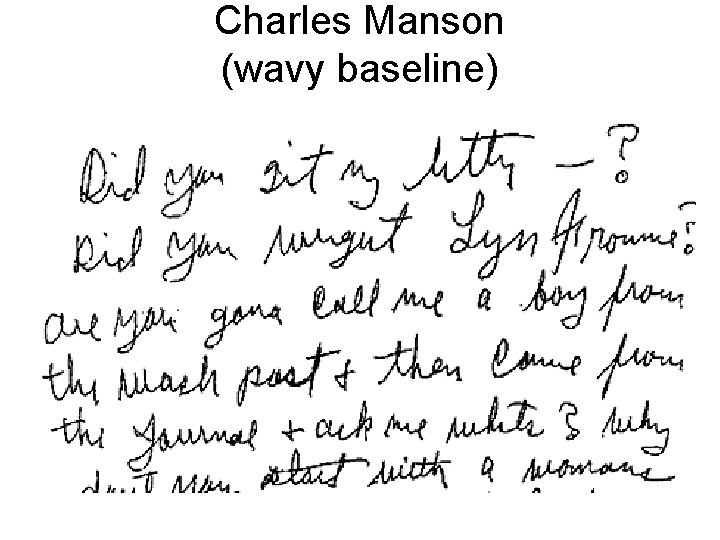 Charles Manson
(wavy baseline)
Did you git my letty — ?
Did you Lyn Froume?
are you gona call me a boy from
the wach post & then come from
the Journal & ack me whats & why
don't you start with a womans